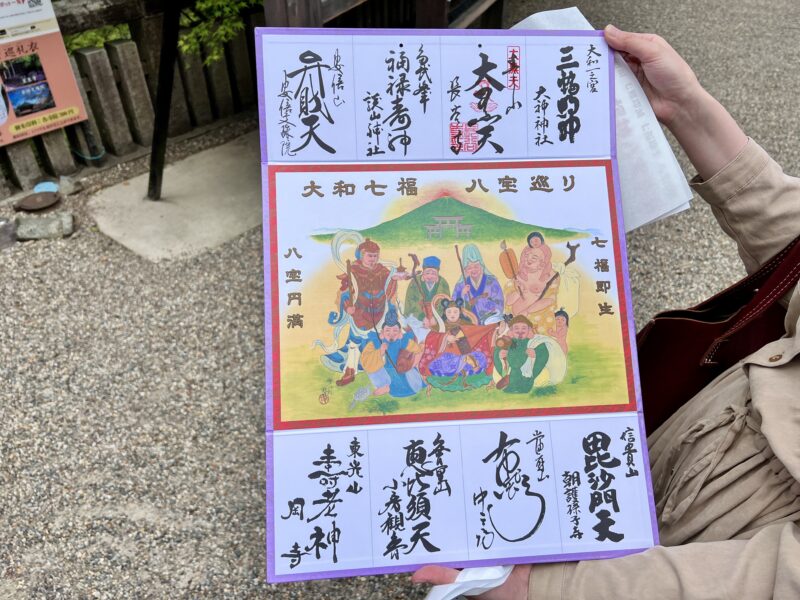 大和一之宮
三輪明神
大神神社
大黒天
長谷寺
多武峯
福禄寿神
談山神社
安倍山
弁財天
安倍文殊院
大和七福 八宝巡り
八宝円満
七福即生
信貴山
毘沙門天
朝護孫子寺
當麻山
布袋
中之坊
恵比須天
小房観音
東光山
寿老神
巡礼衣